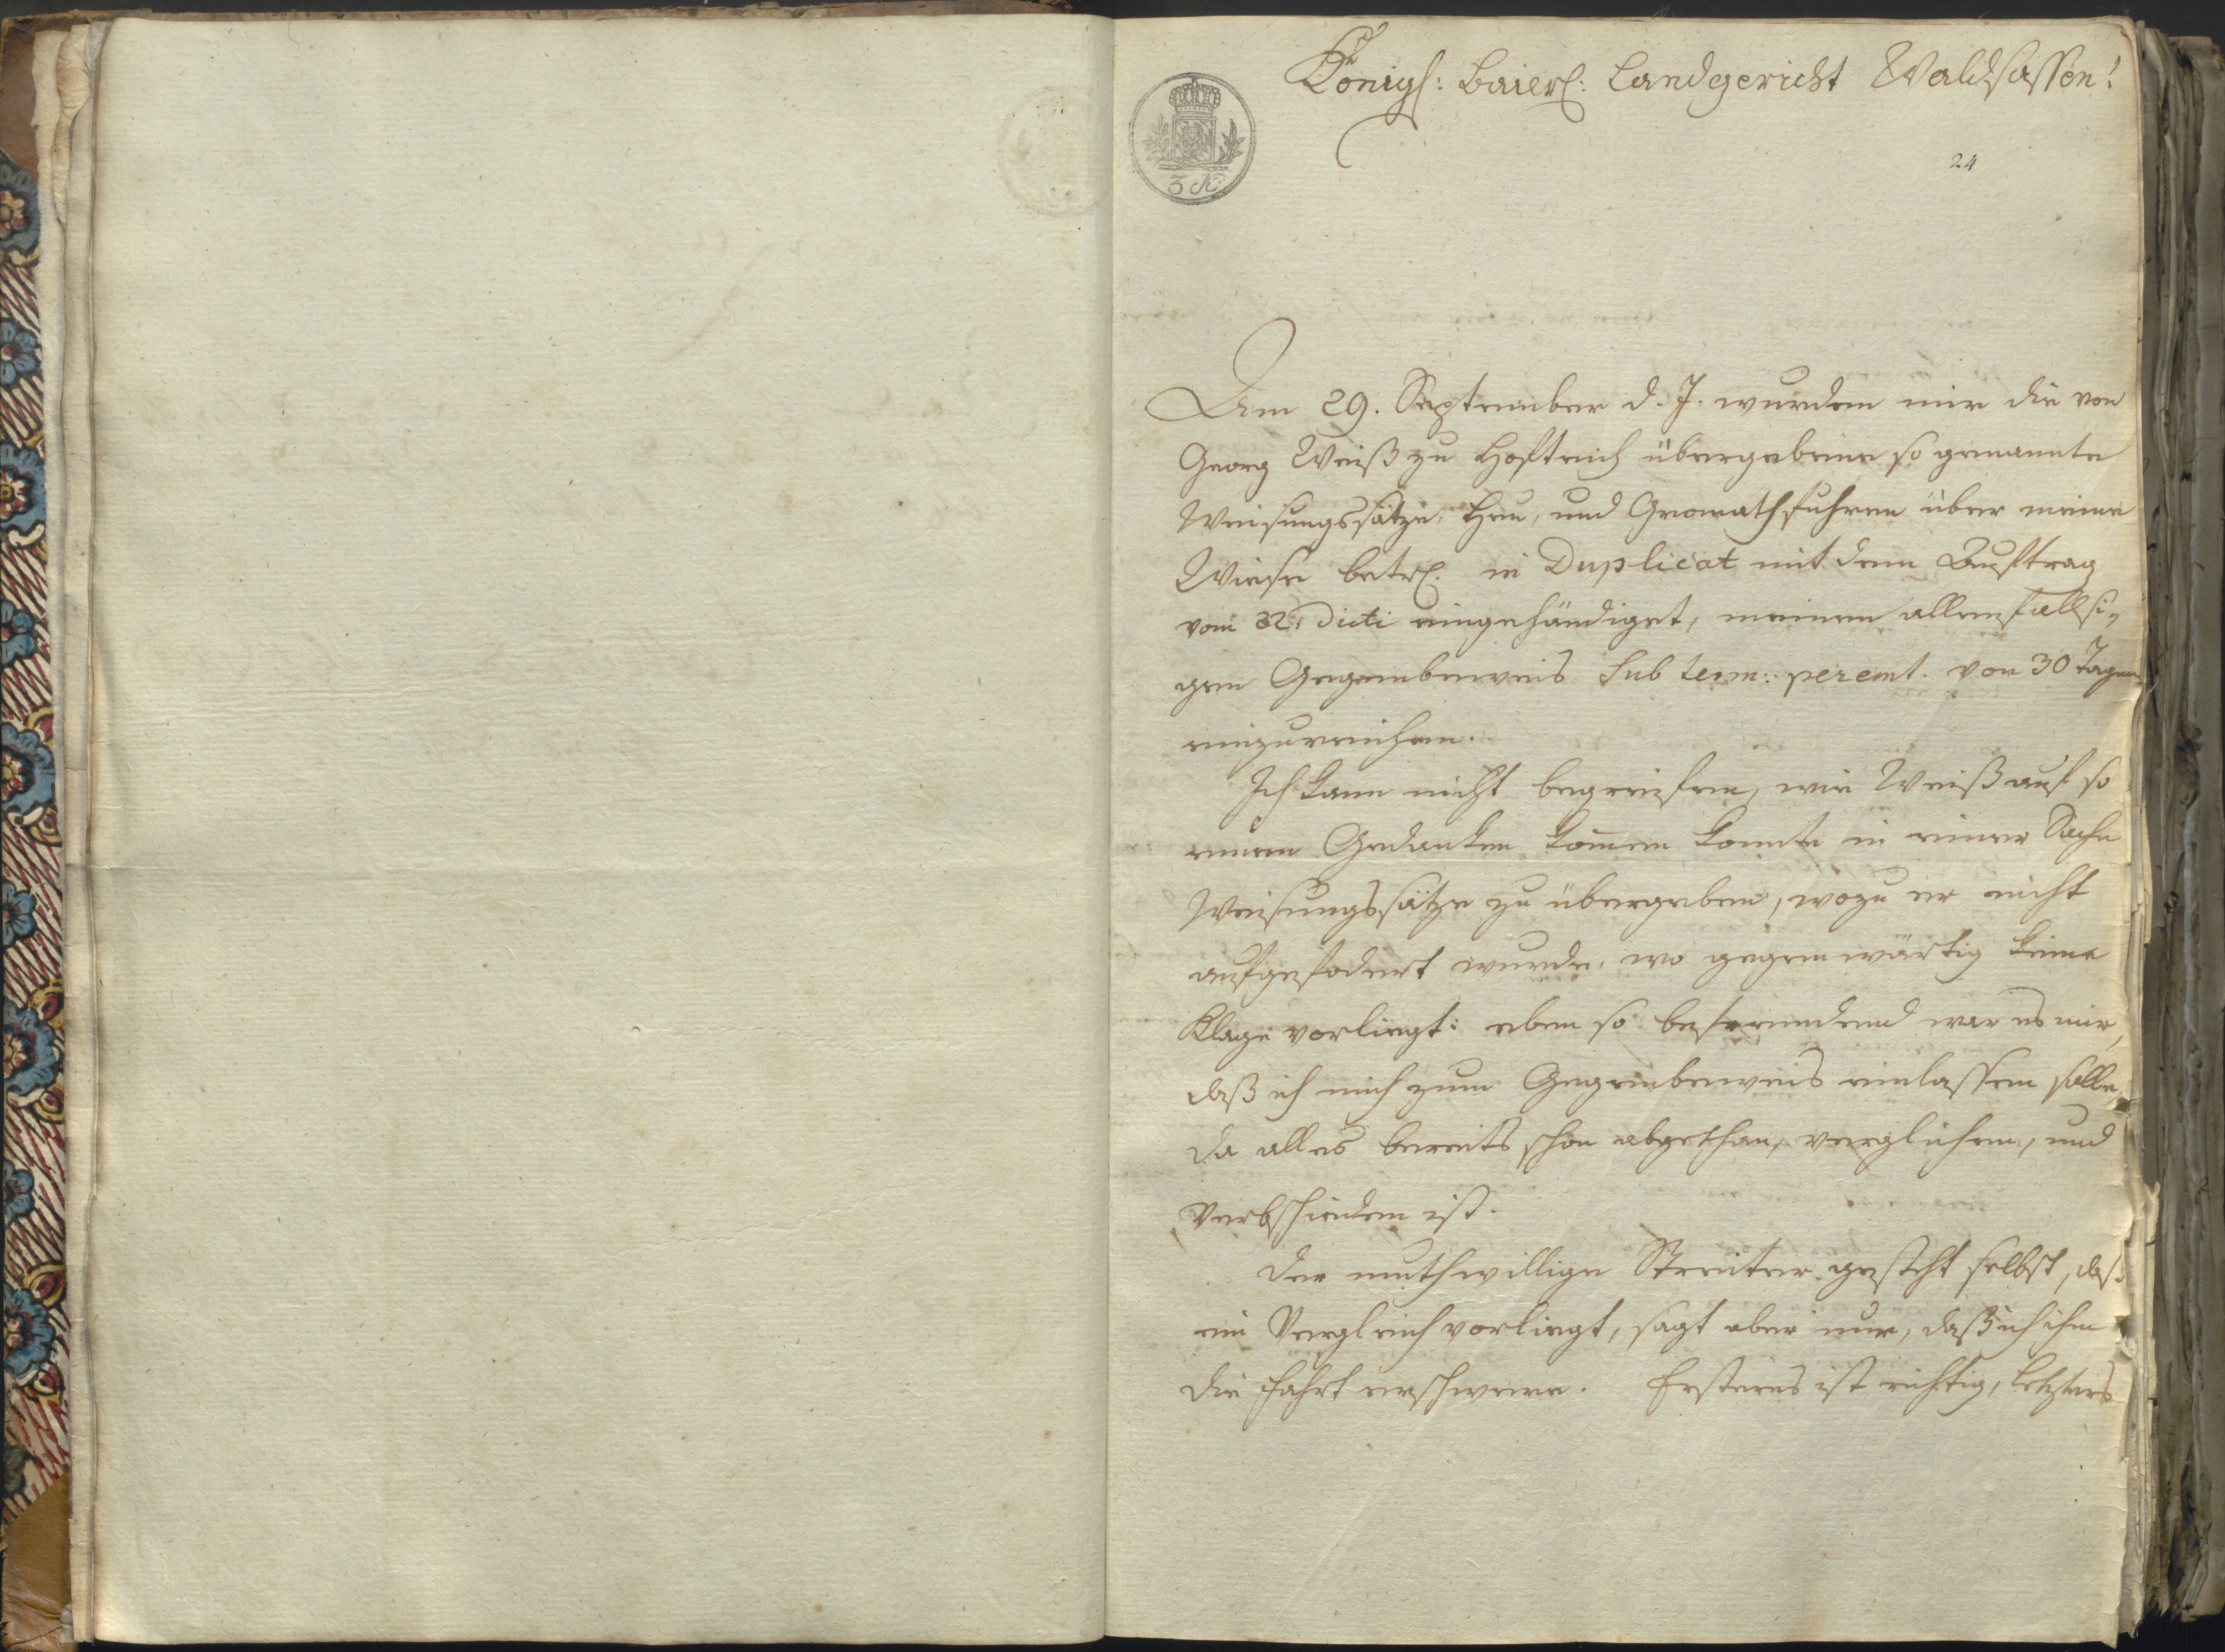 Königl: baier. Landgericht Waldsassen!
3 kr:
24
Am 29. September d. J. wurden mir die von
Georg Weiß zu Hofteich übergebene so genannte
Weisungssätze, Heu, und Gromathfuhren über meine
Wiese betr. in Duplicat mit dem Auftrag
vom 22. dicti eingehändiget, meinen allenfallsi„
gen Gegenbeweis sub term: peremt. von 30 Tagen
einzureichen.
Ich kann nicht begreifen, wie Weiß auf so
einen Gedanken kom̄en konnte in einer Sache
Weisungssätze zu übergeben, wozu er nicht
aufgefodert wurde, wo gegenwärtig keine
Klage vorliegt: eben so befremdend war es mir,
daß ich mich zum Gegenbeweis einlassen solle,
da alles bereits schon abgethan, verglichen, und
verbschieden ist.
Der muthwillige Streiter gesteht selbst, daß
ein Vergleich vorliegt, sagt aber nur, daß ich ihm
die Fahrt erschwere. Ersteres ist richtig, letzters